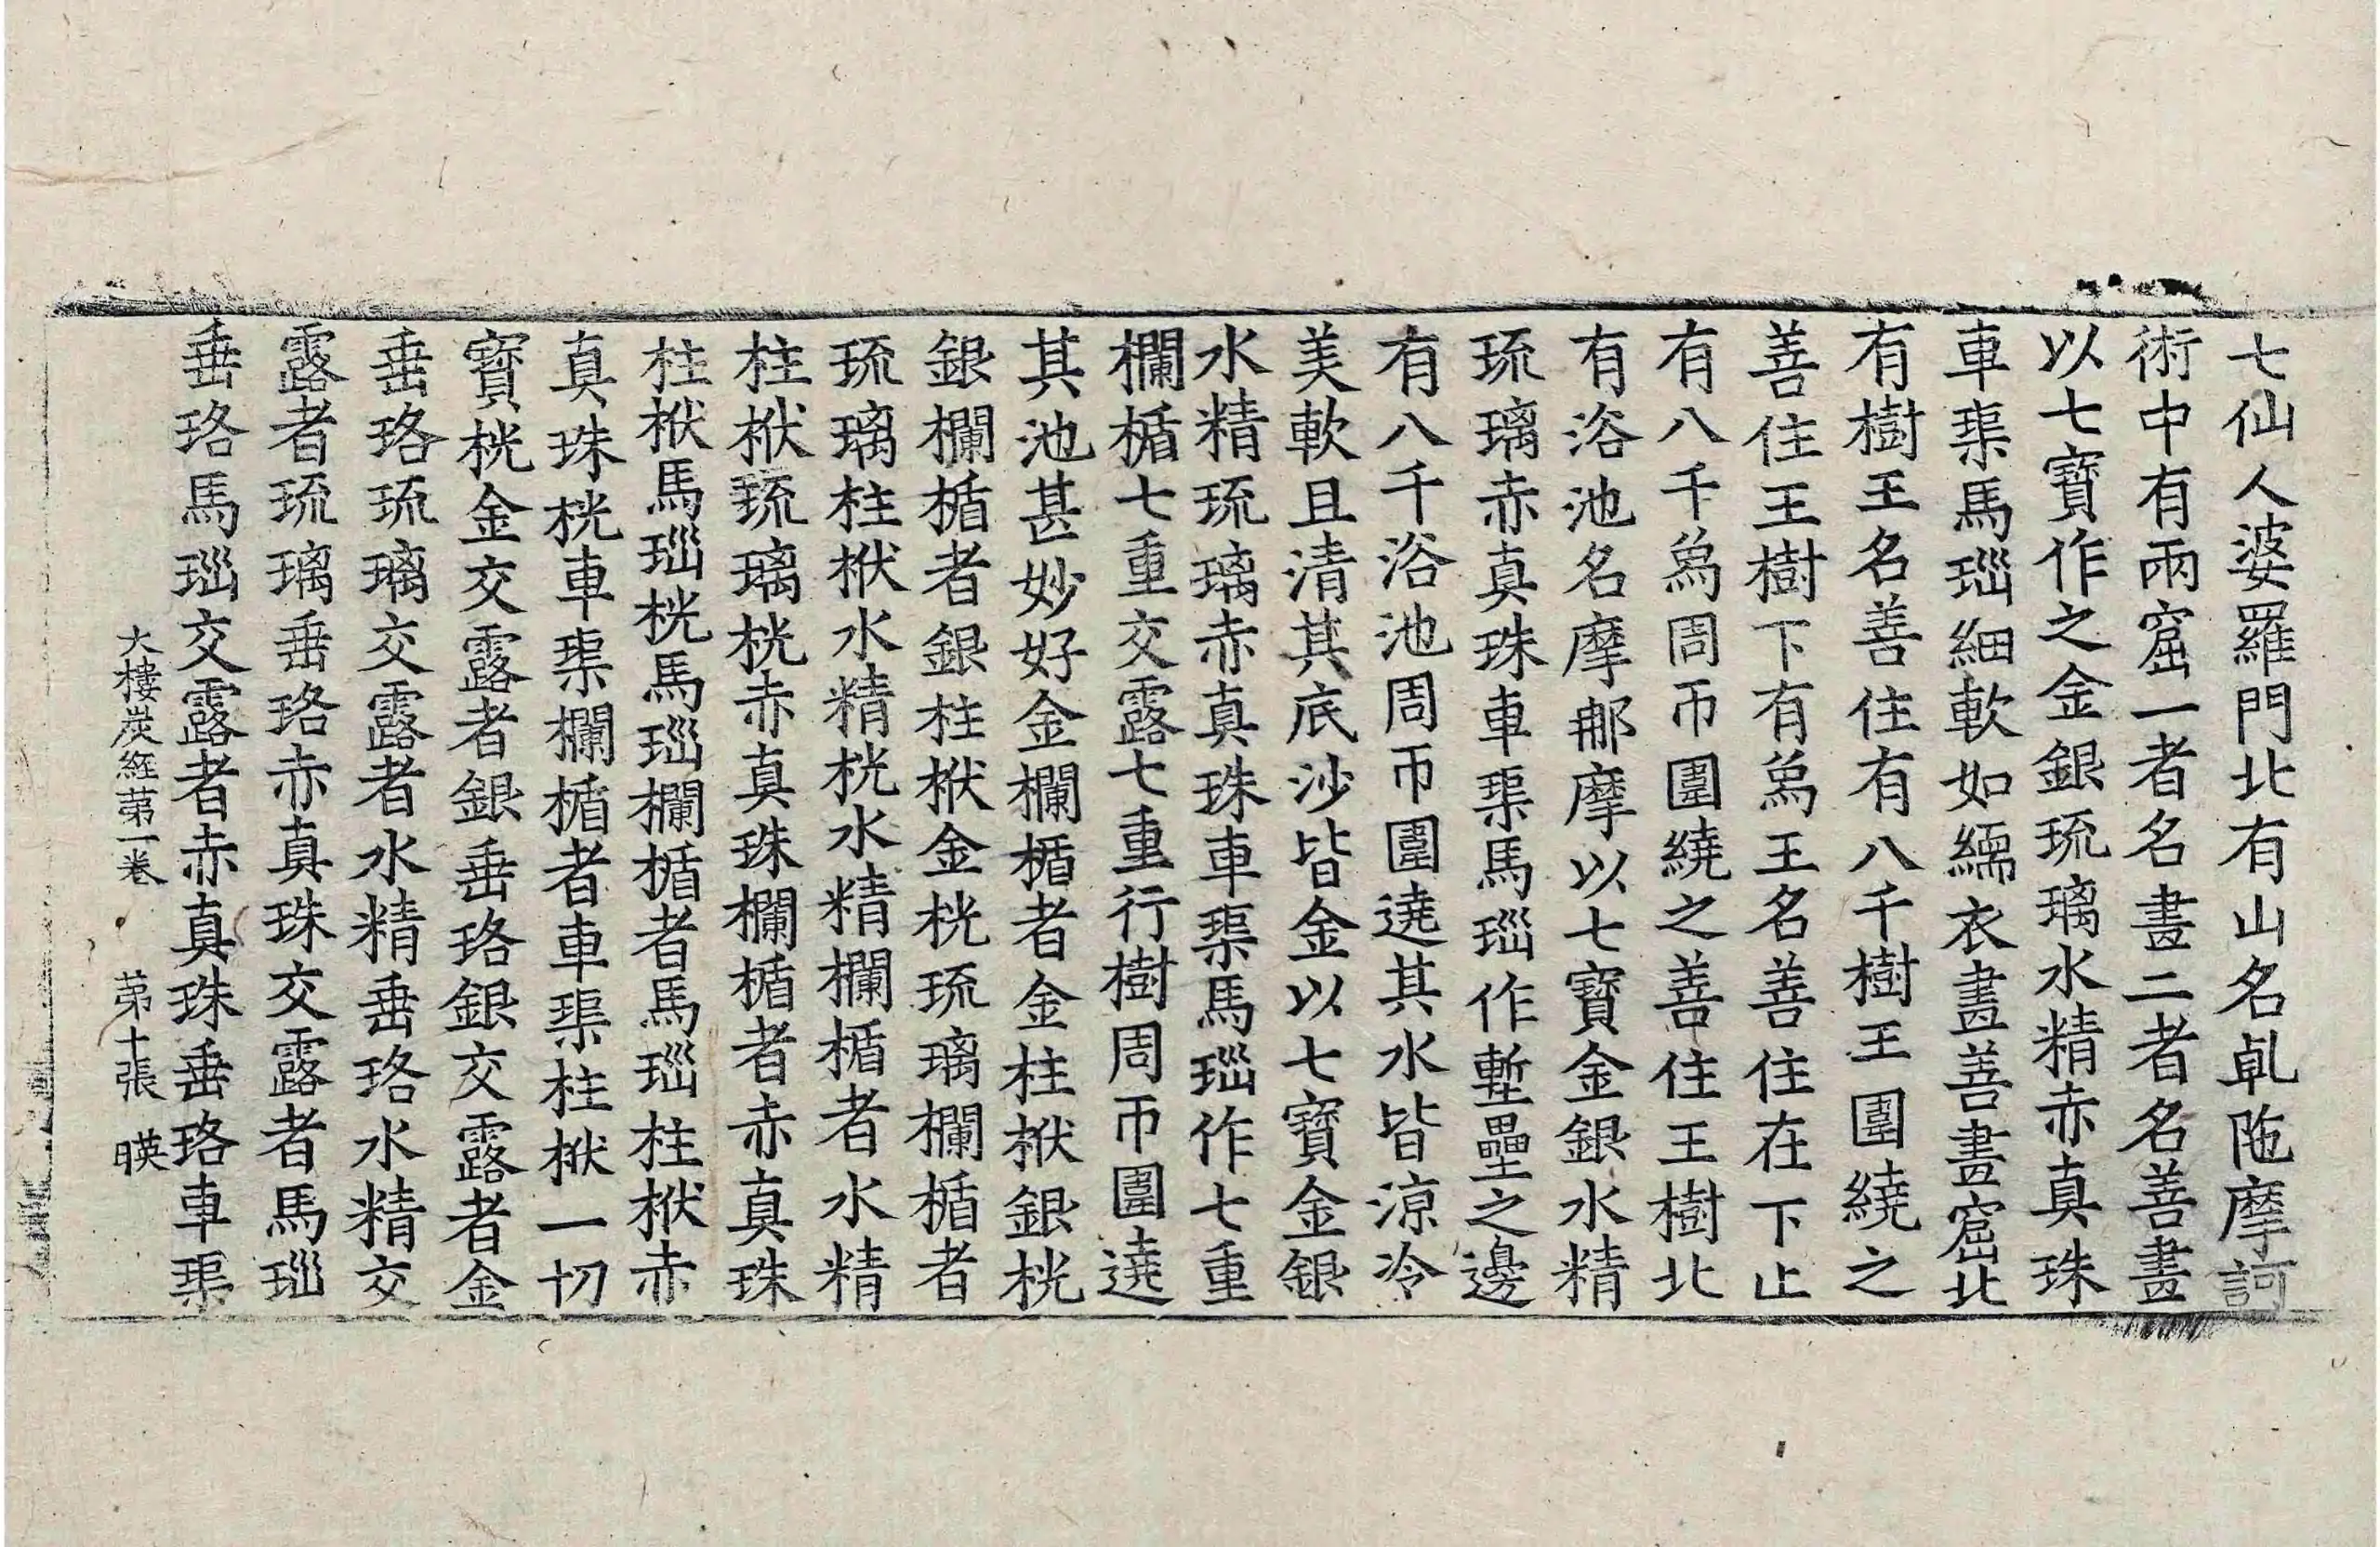 七仙人婆羅門北有山名乹陁摩訶
術中有兩窟一者名晝二者名善晝
以七寶作之金銀琉璃水精赤真珠
車渠馬瑙細軟如繻衣晝善晝窟北
有樹王名善住有八千樹王圍繞之
善住王樹下有爲王名善住在下止
有八千爲周帀圍繞之善住王樹北
有浴池名摩那摩以七寶金銀水精
琉璃赤真珠車渠馬瑙作塹壘之邊
有八千浴池周帀圍遶其水皆涼冷
美軟且清其底沙皆金以七寶金銀
水精琉璃赤真珠車渠馬瑙作七重
欄楯七重交露七重行樹周帀圍遶
其池甚妙好金欄楯者金柱栿銀桄
銀欄楯者銀柱栿金桄琉璃欄楯者
琉璃柱栿水精桄水精欄楯者水精
柱栿琉璃桄赤真珠欄楯者赤真珠
柱栿馬瑙桄馬瑙欄楯者馬瑙柱栿赤
真珠桄車渠欄楯者車渠柱栿一切
寶桄金交露者銀垂珞銀交露者金
垂珞琉璃交露者水精垂珞水精交
露者琉璃垂珞赤真珠交露者馬瑙
垂珞馬瑙交露者赤真珠垂珞車渠
大樓炭經第一卷 第十張 暎